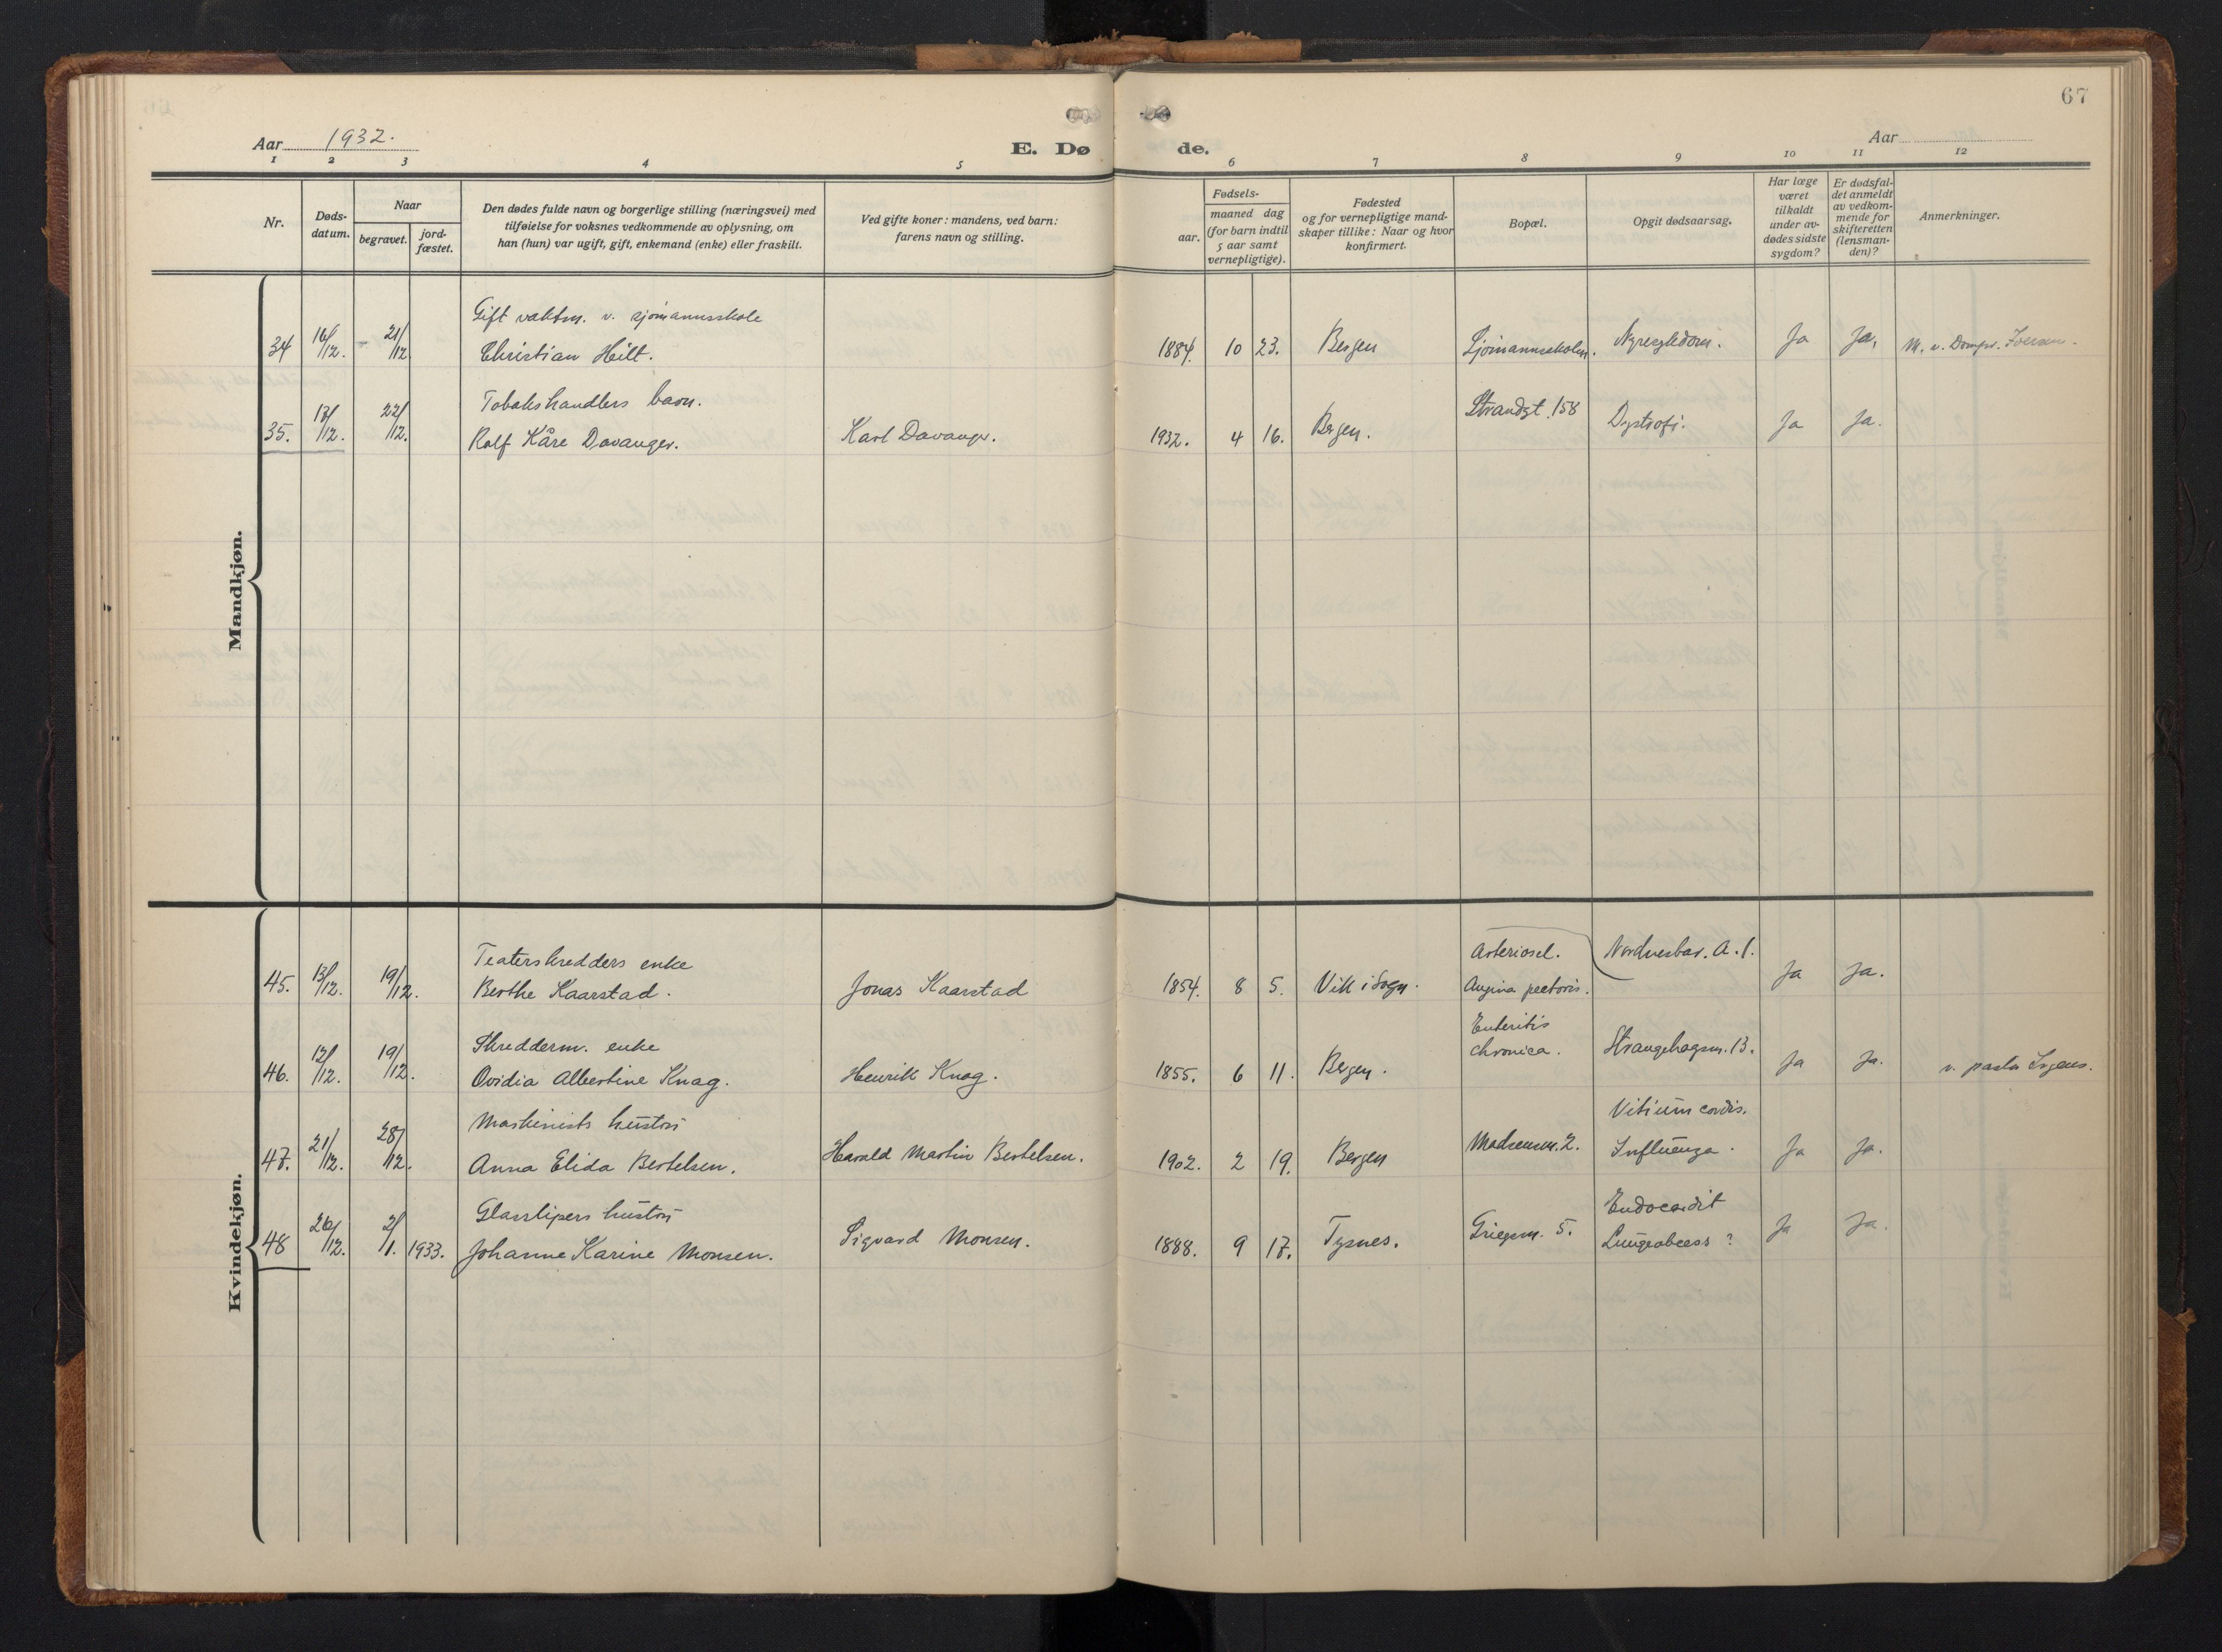 67
Aar 1932.
E. Dø de.
Aar
1 2 3 4 5 6 7 8 9 10 11 12
Nr.
Døds-
datum.
Naar
begravet.
jord-
fæstet.
Den dødes fulde navn og borgerlige stilling (næringsvei) med
tilføielse for voksnes vedkommende av oplysning, om
han (hun) var ugift, gift, enkemand (enke) eller fraskilt.
Ved gifte koner: mandens, ved barn:
farens navn og stilling.
Fødsels-
aar.
maaned dag
(for barn indtil
5 aar samt
vernepligtige).
Fødested
og for vernepligtige mand-
skaper tillike: Naar og hvor
konfirmert.
Bopæl.
Opgit dødsaarsag.
Har læge
været
tilkaldt
under av-
dødes sidste
sygdom?
Er dødsfal-
det anmeldt
av vedkom-
mende for
skifteretten
(lensman-
den)?
Anmerkninger.
Mandkjøn.
Gift vaktm. v. sjømannsskole
34 16/12. 21/12 Christian Heilt. 1884. 10 23. Bergen Sjømannsskolen. Nyresykdom. Ja Ja, M. v. Dompr. Iversen.
Tobakshandlers barn.
35. 17/12. 22/12. Rolf Kåre Davanger. Karl Davanger. 1932. 4 16. Bergen. Strandgt. 158 Dystrofi. Ja Ja.
Kvindekjøn.
Teaterskredders enke Arterioscl. Nordnesbar. A. 1.
45. 13/12. 19/12. Berthe Kaarstad. Jonas Kaarstad 1854. 8 5. Vik i Sogn. Angina pectoris. Ja Ja.
Skredderm. enke Enteritis
46. 12/12. 19/12. Ovidia Albertine Knag. Henrik Knag. 1855. 6 11. Bergen. chronica. Strangehagen. 13. Ja Ja. v. pastor
Maskinists hustru Vitium cordis.
47. 21/12. 28/12. Anna Elida Bertelsen. Harald Martin Bertelsen. 1902. 2 19. Bergen Madsensm. 2. Influenza. Ja Ja.
Glasslipers hustru Endocardit
48 26/12. 2/1. 1933. Johanne Karine Monsen. Sigvard Monsen. 1888. 9 17. Tysnes. Griegsm. 5. Lungeabcess? Ja Ja.